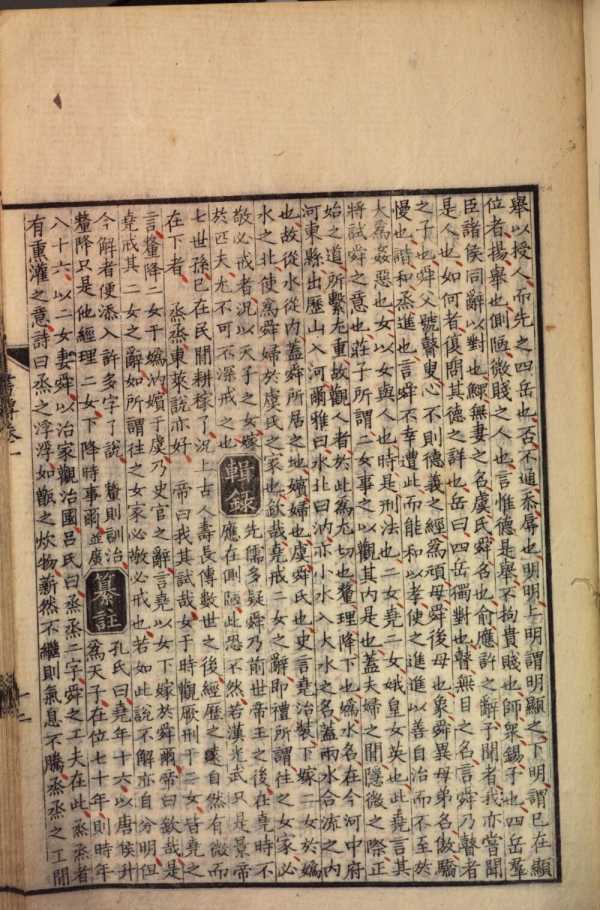 舉以授人而先之四岳也否不通忝辱也明明上明謂明顯之下明謂已在顯
位者揚舉也側陋微賤之人也言惟德是舉不拘貴賤也師衆錫予也四岳羣
臣諸侯同辭以對也鰥無妻之名虞氏舜名也俞應許之辭予聞者我亦嘗聞
是人也如何者復問其德之詳也岳曰四岳獨對也瞽無目之名言舜乃瞽者
之子也舜父號瞽叟心不則德義之經爲頑母舜後母也象舜異母弟名傲驕
慢也諧和烝進也言舜不幸遭此而能和以孝使之進進以善自治而不至於
大爲姦惡也女以女與人也時是刑法也二女堯二女娥皇女英也此堯言其
將試舜之意也莊子所謂二女事之以觀其內是也蓋夫婦之間隱微之際正
始之道所繫尤重故觀人者於此爲尤切也釐理降下也嬀水名在今河中府
河東縣出歷山入河爾雅曰水北曰汭亦小水入大水之名蓋兩水合流之內
也故從水從內蓋舜所居之地嬪婦也虞舜氏也史言堯治裝下嫁二女于嬀
水之北使爲舜婦於虞氏之家也欽哉堯戒二女之辭即禮所謂往之女家必
敬必戒者況以天子之女嫁
於匹夫尤不可不深戒之也
輯錄
先儒多疑舜乃前世帝王之後在堯時不
應在側陋此恐不然若漢光武只是景帝
七世孫已在民間耕稼了況上古人壽長傳數世之後經歷之遠自然有微而
在下者 烝烝東萊說亦好 帝曰我其試哉女于時觀厥刑于二女皆堯之
言釐降二女于嬀汭嬪于虞乃史官之辭言堯以女下嫁於舜爾帝曰欽哉是
堯戒其二女之辭如所謂往之女家必敬必戒也若如此說不解亦自分明但
今解者便添入許多字了說 釐則訓治
釐降只是他經理二女下降時事爾並廣
纂註
孔氏曰堯年十六以唐侯升
爲天子在位七十年則時年
八十六 以二女妻舜以治家觀治國呂氏曰烝烝二字舜之工夫在此烝烝者
有熏灌之意詩曰烝之浮浮如甑之炊物薪然不繼則氣息不騰烝烝之工間